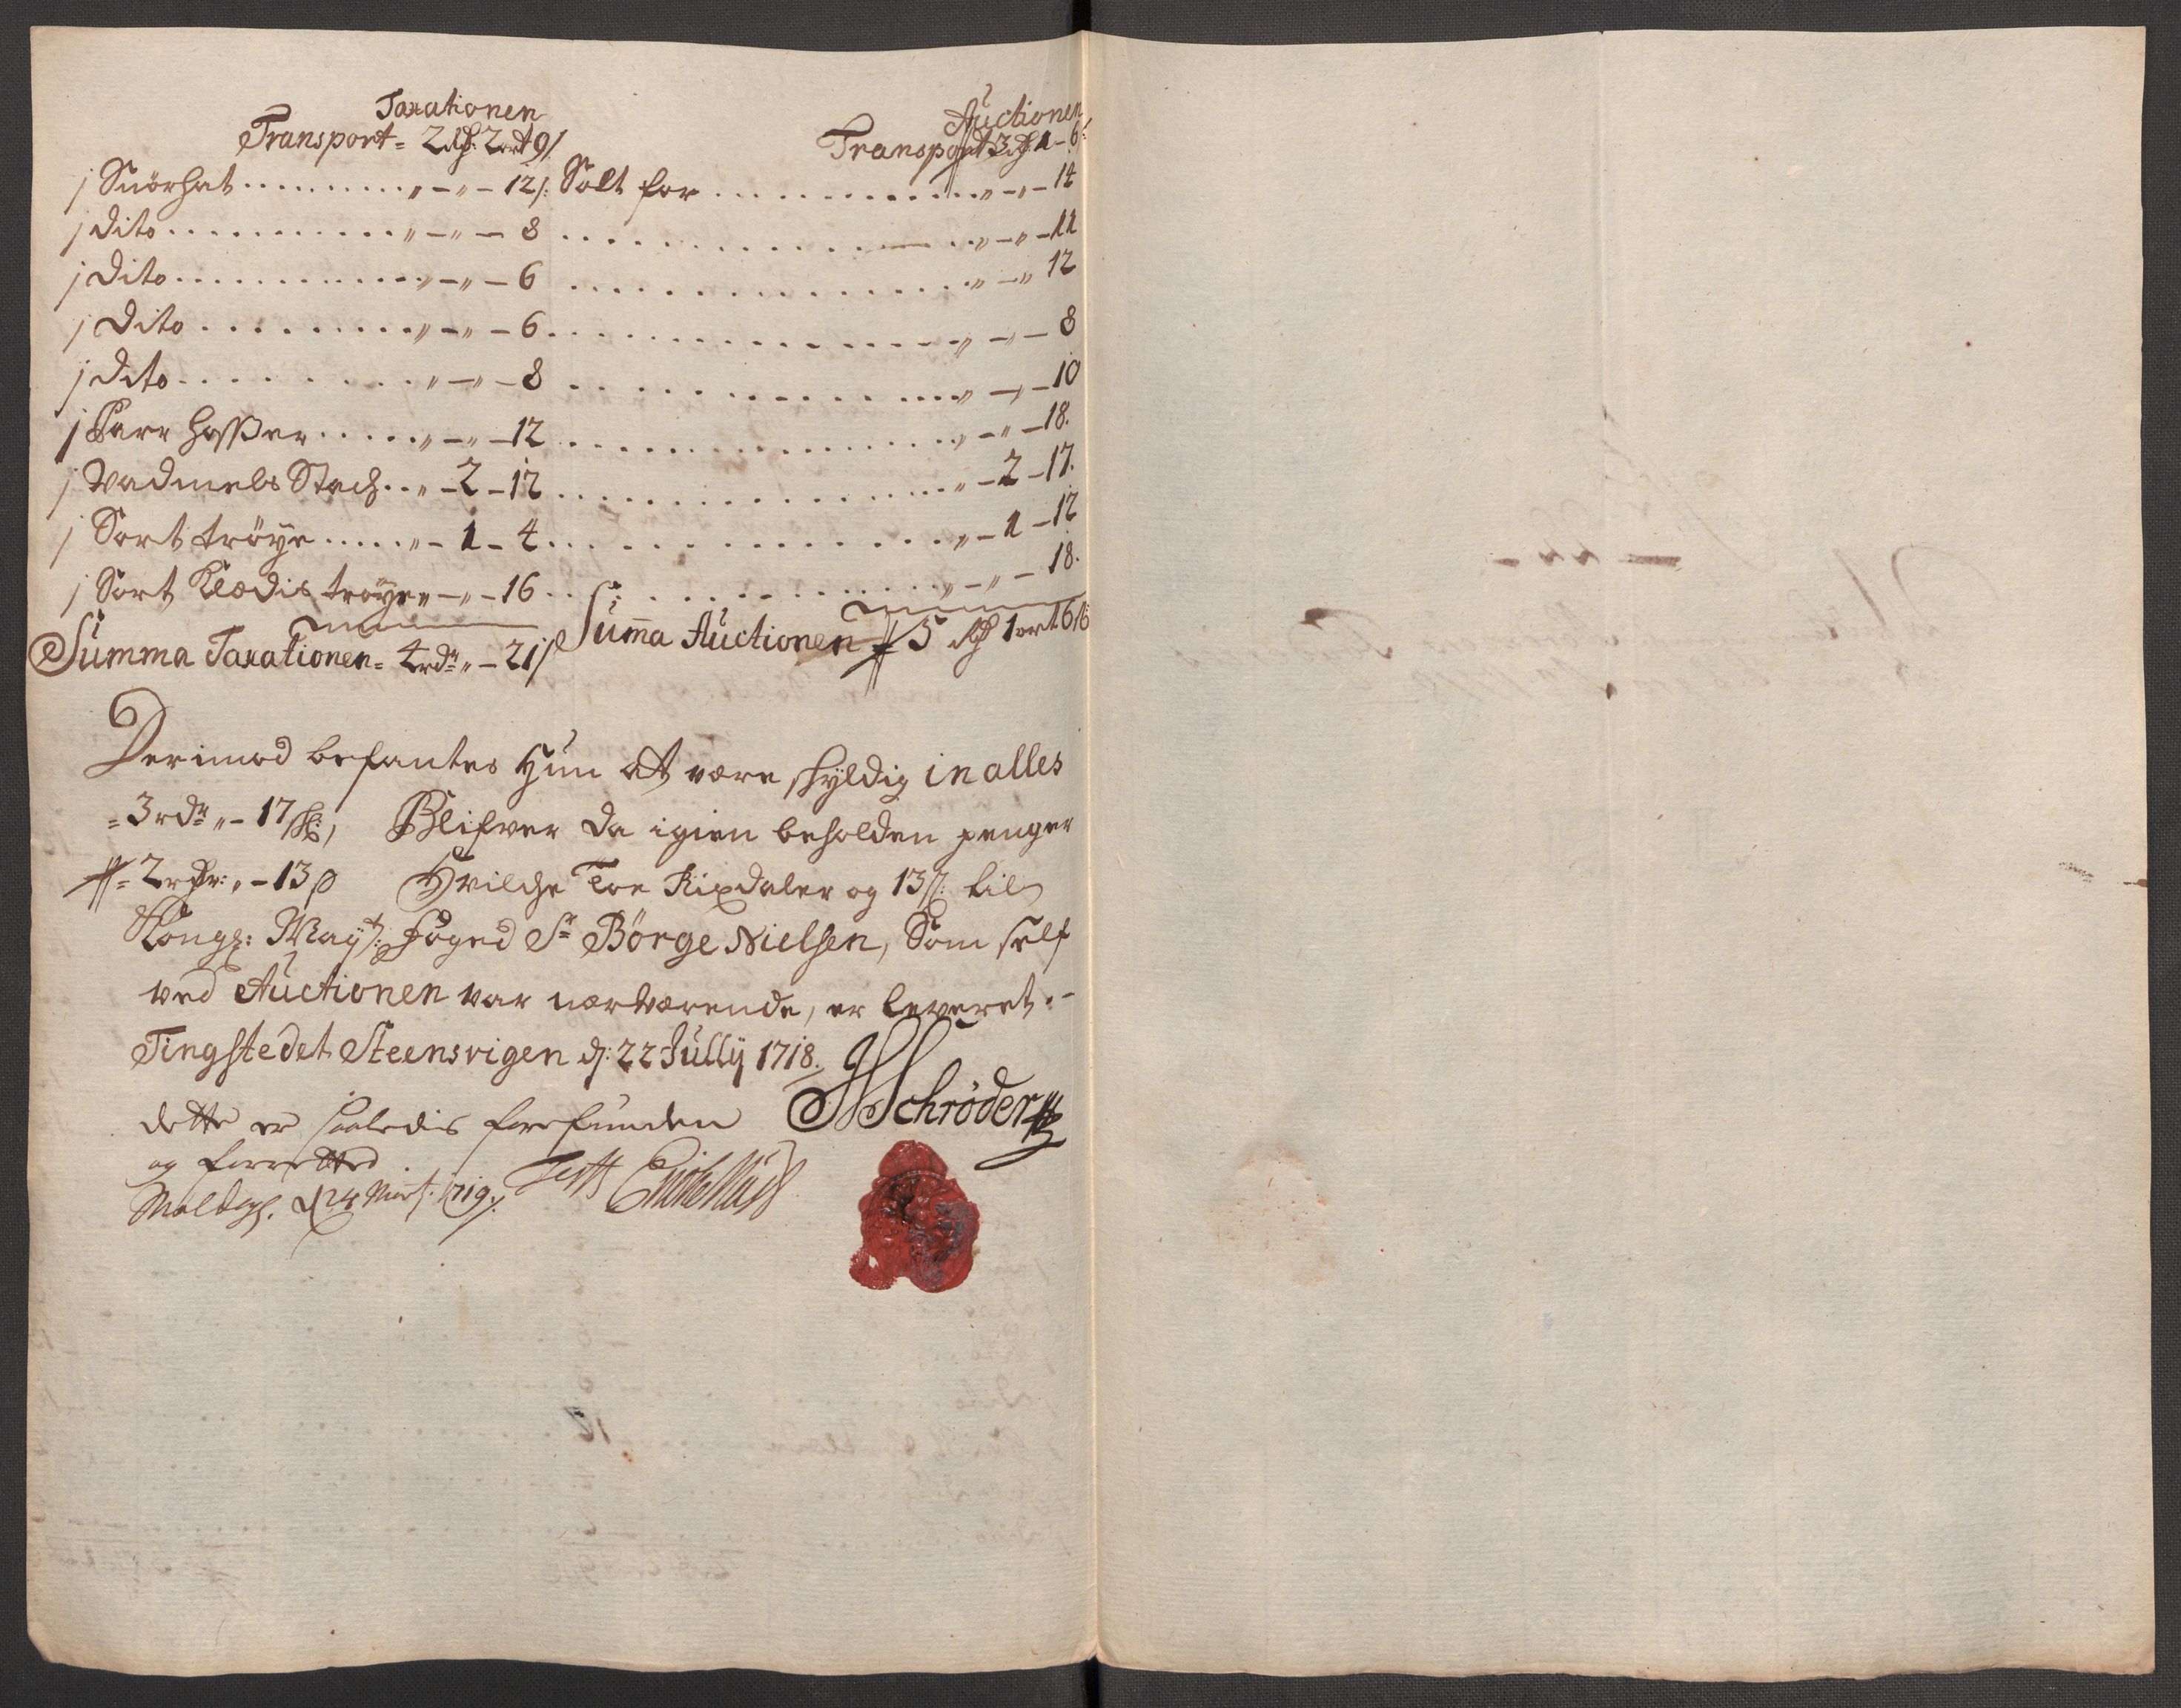 Taxationen Auctionen
Transport = 2 rdr: 2 ort 9 s Transport 3 rdr 1 - 6
1 Snörhat .......... „ - „ - 12 s: Solt for ............ „ - „ - 14
1 dito ........... „ - „ - 8 ............... „ - „ - 11
1 Dito ........... „ - „ - 6 ............... „ - „ 12
1 Dito ......... „ - „ - 6 ............... „ - „ - 8
1 dito .......... „ - „ - 8 ............... „ - „ - 10
1 Parr Hosser ..... „ - „ - 12 ............... „ - „ - 18.
1 Vadmels Stach .. „ - 2 - 12 ............... „ - 2 - 17.
1 Sort tröye ..... „ - 1 - 4 ............... „ - 1 - 12
1 Sort Klædis tröye „ - „ - 16 ............... „ - „ - 18.
Summa Taxationen = 4 rdr „ - 21 s Suma Auctionen 5 rdr 1 ort 6 s
Derimod befantes Hun at være skyldig in alles
= 3 rdr „ - 17 sk:, Blifver da igien beholden penger
= 2 rdr: „ - 13 s Hvilche Toe Rixdaler og 13 s: til
Kongl: Mayt: Foged Sr Börge Nielsen, Som self
ved Auctionen var nærværende, er leveret. -
Tingstedet Steensvigen d: 22 Jully 1718.
HSchrøder
dette er saaledis forefunden
og forretted
d 24 Mart. 1719.